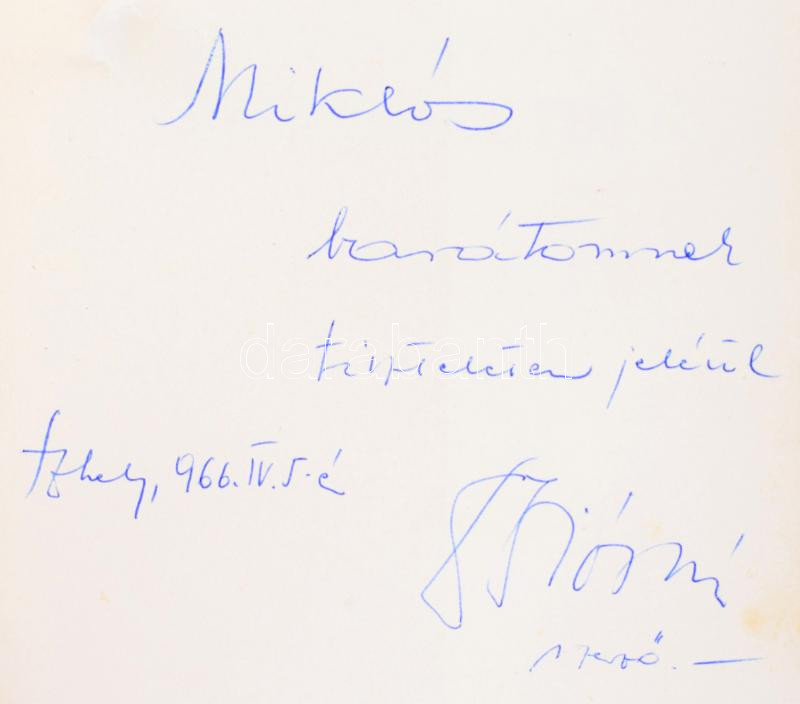 Miklós
barátomnak
tiszteletem jeléül
Szhely, 966. IV. 5-é
szerző. —
darabanth